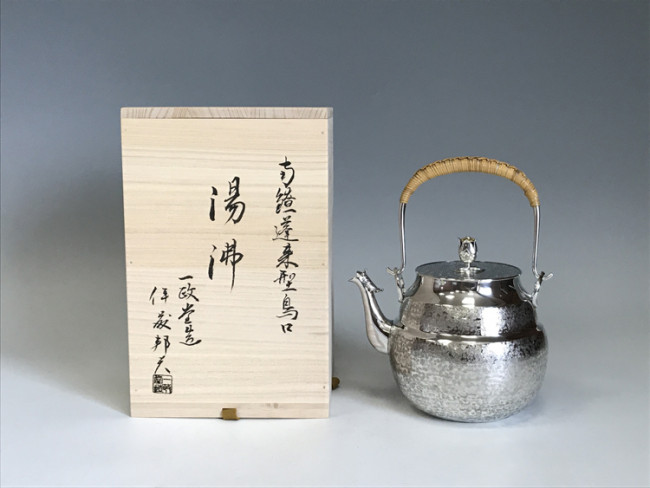 南鐐蓬莱型鳥口
湯沸
一政堂造
邦夫